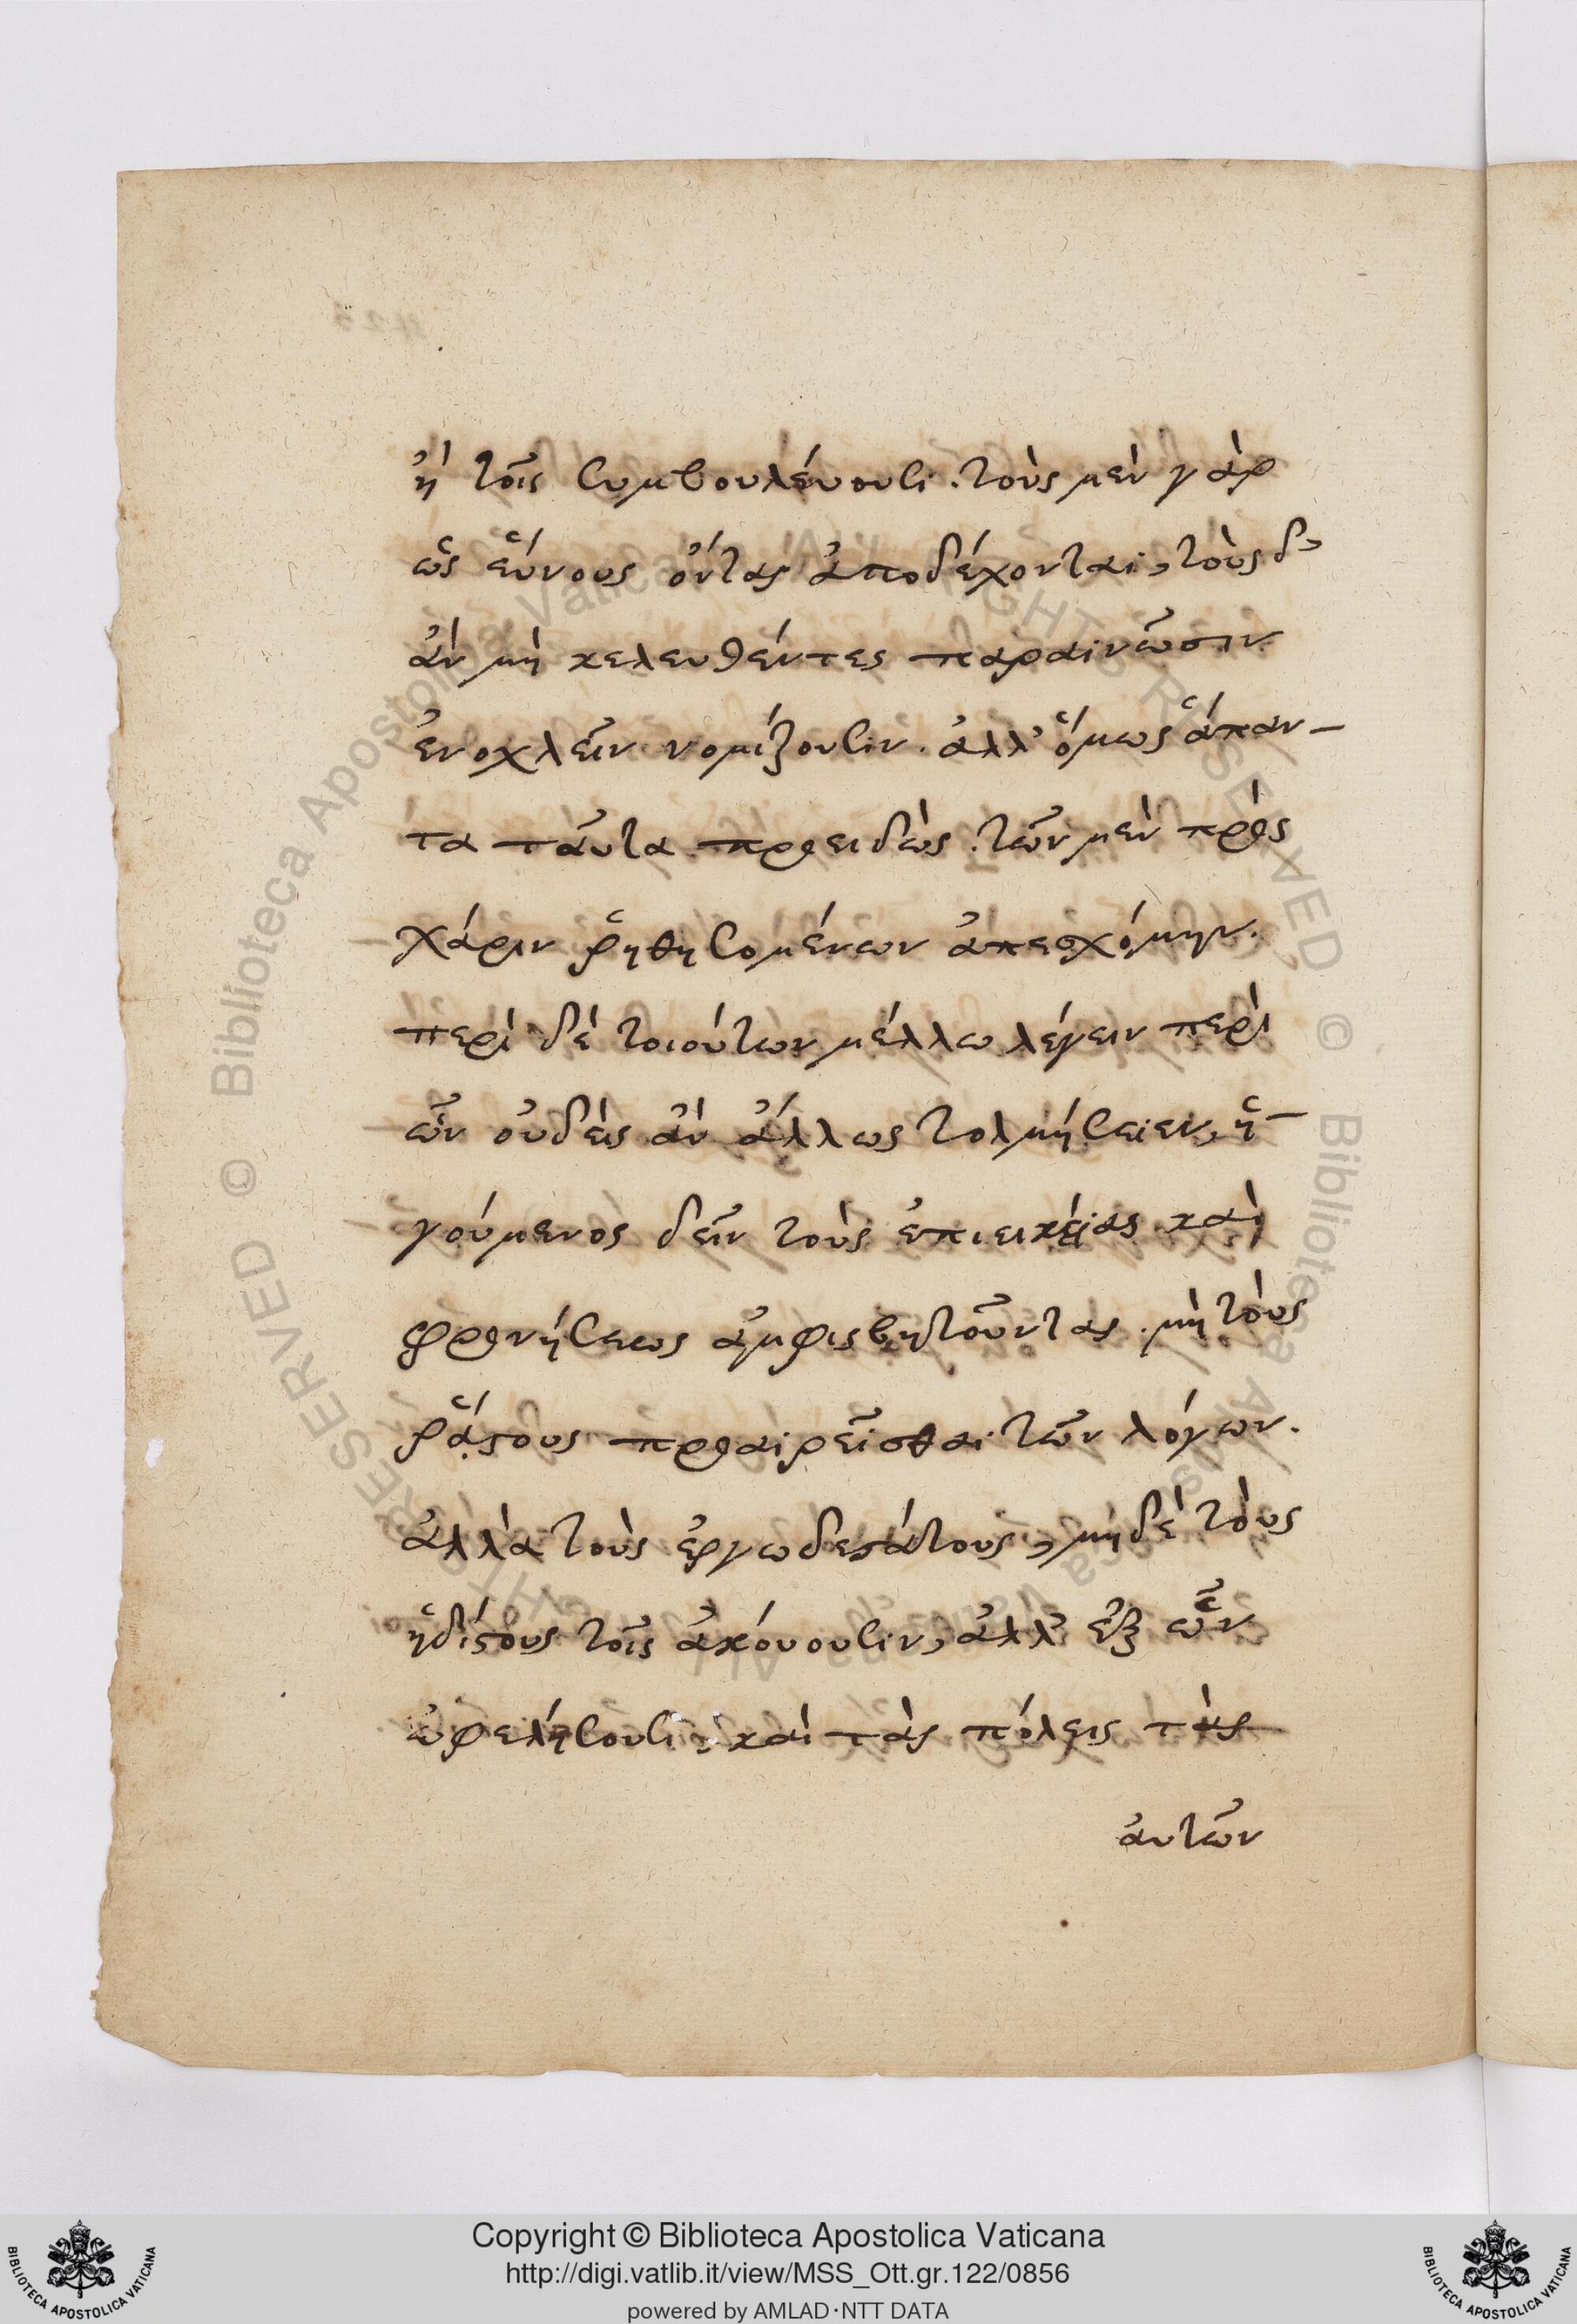 ἢ τοῖς συμβουλέυουσι. τοὺς μὲν γὰρ
ὡς εὔνους ὄντας ἀποδέχονται, τοὺς δ'
ἂν μὴ κελευθέντες παραινῶσιν
ἐνοχλεῖν νομίζουσιν. ἀλλ' ὅμως ἅπαν-
τα ταῦτα προειδὼς. τῶν μὲν πρὸς
χάριν ῥηθησομένων ἀπεσχόμην.
περὶ δὲ τοιούτων μέλλω λέγειν περὶ
ὧν οὐδεὶς ἂν ἄλλως τολμήσειεν, ἡ-
γούμενος δεῖν τοὺς ἐπιεικείας καὶ
φρονήσεως ἀμφισβητοῦντας. μὴ τοὺς
ῥᾴστους προαιρεῖσθαι τῶν λόγων.
ἀλλὰ τοὺς ἐργωδεστάτους, μηδὲ τοὺς
ἡδίστους τοῖς ἀκόυουσιν, ἀλλ' ἐξ ὧν
ὠφελήσουσι, καὶ τὰς πόλεις τὰς
ἀυτῶν
Copyright © Biblioteca Apostolica Vaticana
http://digi.vatlib.it/view/MSS_Ott.gr.122/0856
powered by AMLAD·NTT DATA